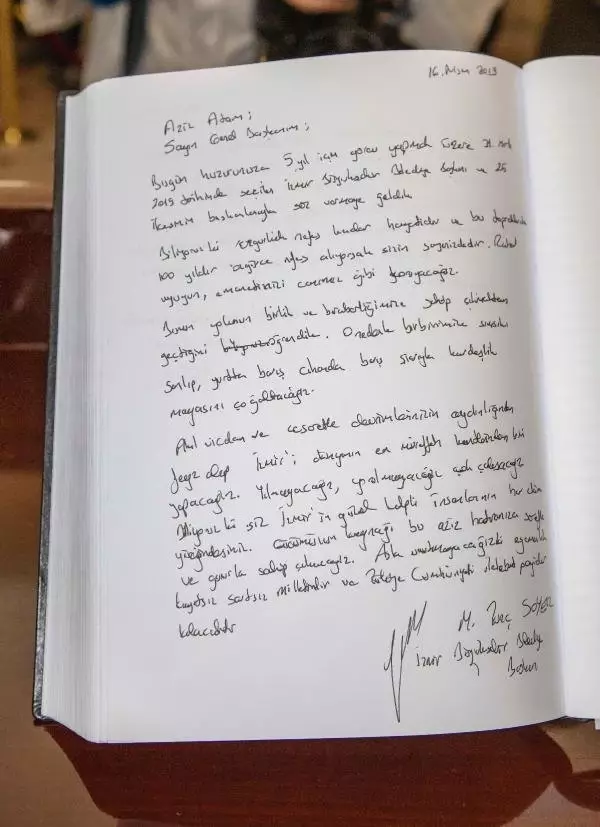 16. Nisan 2019
Aziz Atam;
Sayın Genel Başkanım;
Bugün huzurunuza 5 yıl için görev yapmak üzere 31 Mart
2019 tarihinde seçilen İzmir Büyükşehir Belediye Başkanı ve
ilçemizin başkanlarıyla söz vermeye geldik
Biliyoruz ki özgürlük nefes kadar hayatidir ve bu topraklarda
100 yıldır özgürce nefes alıyorsak sizin sayenizdedir. Rahat
uyuyun, emanetinizi canımız gibi koruyacağız.
Bunun yolunun birlik ve beraberliğimize sahip çıkmaktan
geçtiğini öğrendik. O nedenle birbirimize sımsıkı
sarılıp, yurtta barış cihanda barış şiarıyla kardeşlik
mayasını çoğaltacağız.
Akıl vicdan ve cesaretle devrimlerinizin aydınlığından
feyz alıp İzmir'i dünyanın en müreffeh kentlerinden biri
yapacağız. Yılmayacağız, yorulmayacağız çok çalışacağız
Biliyoruz ki siz İzmir'in güzel kalpli insanlarının her daim
yüreğindesiniz. Gücümüzün kaynağı bu aziz hatıranıza
ve gururla sahip çıkacağız. Asla unutmayacağız ki egemenlik
kayıtsız şartsız milletindir ve Türkiye Cumhuriyeti ilelebet payidar
kalacaktır
M. Tunç SOYER
İzmir Büyükşehir Belediye
Başkanı